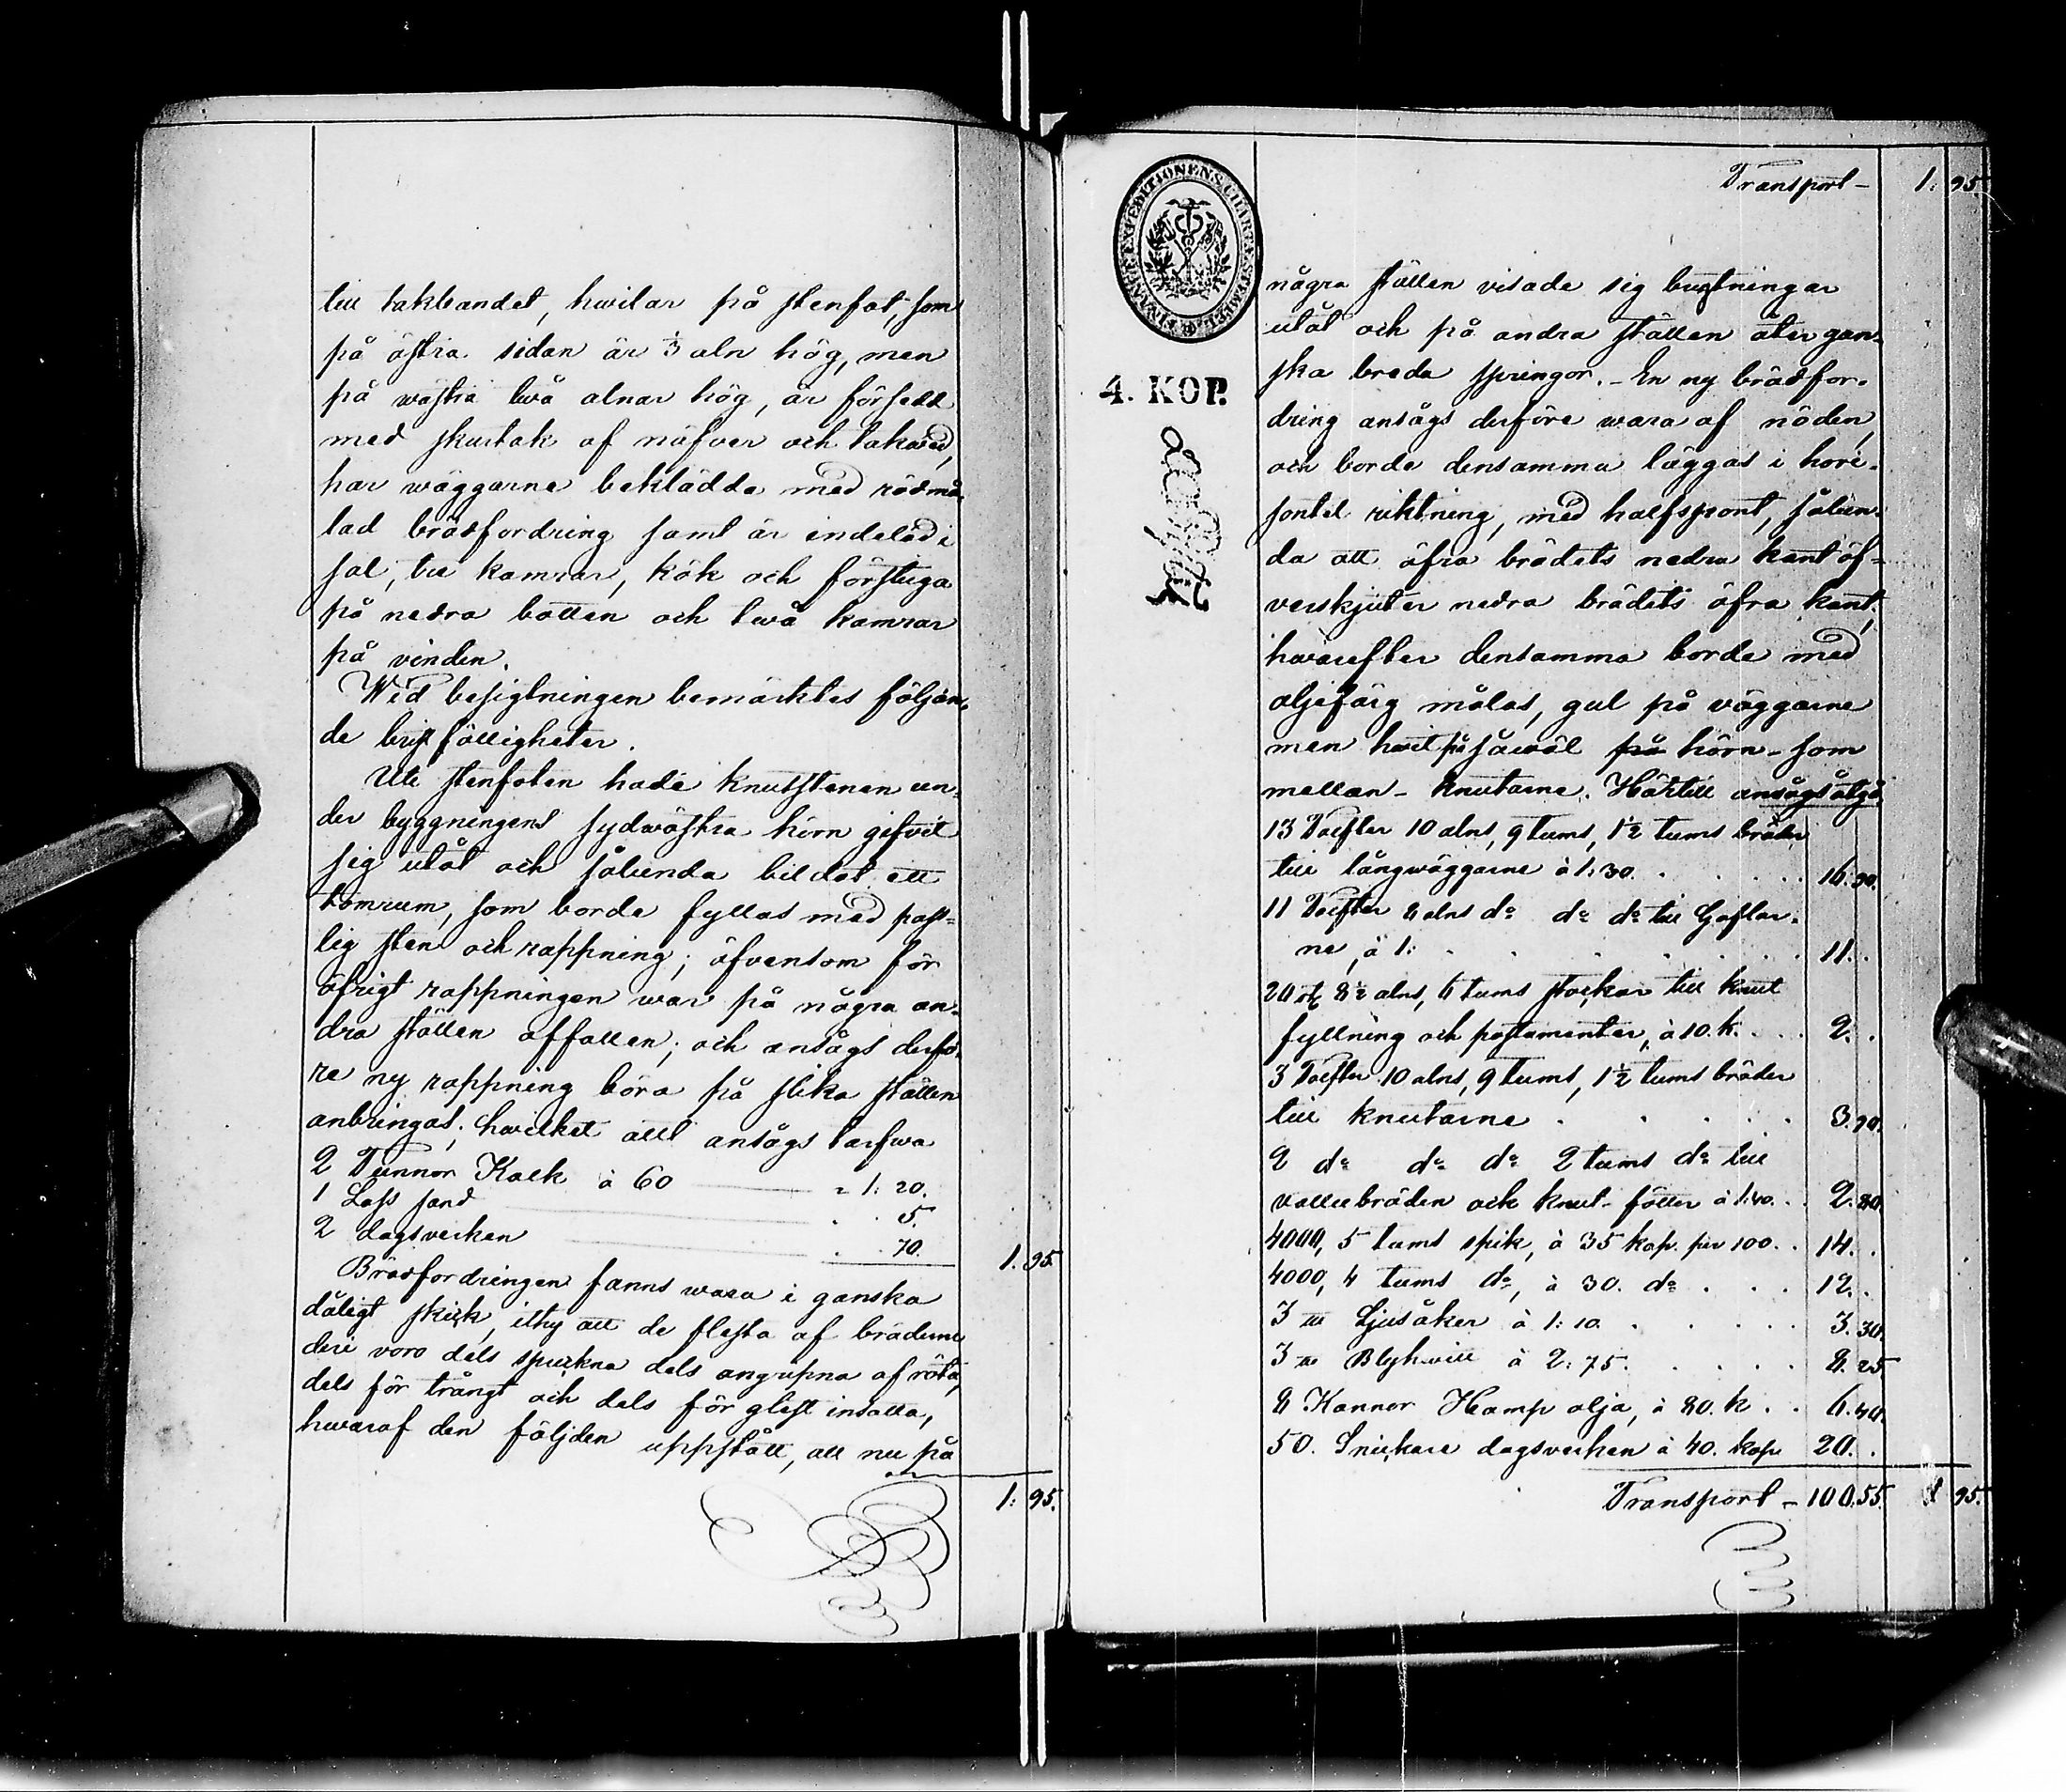 till takbandet, hwilar på stenfot, som
på östra sidan är 1/3 aln hög, men
på wästra twå alnar hög, är försedd
med skurtak af näfver och takved,
har wäggarne beklädda med rödmå-
lad brädfordring samt är indelad i
sal, tre kamrar, kök och förstuga
på nedra botten och twå kamrar
på vinden.
Wid besigtningen bemärktes följan-
de bristfälligheter.
Uti stenfoten hade knutstenen un-
der byggningens sydwästra hörn gifvit
sig utåt och sålunda bildat ett
tomrum, som borde fyllas med pass-
lig sten och rappning; äfvensom för
öfrigt rappningen war på några an-
dra ställen affallen; och ansågs derfö-
re ny rappning böra på slika ställen
anbringas; hwilket allt ansågs tarfwa
2 Tunnor Kalk à 60 " 1: 20.
1 Lass sand " . 5.
2 dagsverken . . 70. 1. 95
Brädfordringen fanns wara i ganska
dåligt skick, ithy att de flesta af bräderne
deri voro dels spruckna dels angripna af röta,
dels för trångt och dels för glest insatta,
hwaraf den följden uppstått, att nu på
1: 95.
Transport – 1: 95.
FINANCE EXPEDITIONENS CHARTÆ STEMPEL
4. KOP.
några ställen visade sig bugtningar
utåt och på andra ställen åter gan-
ska breda springor. – En ny brädfor-
dring ansågs derföre wara af nöden,
och borde densamma läggas i hori-
sontel riktning, med halfspont, sålun-
da att öfra brädets nedra kant öf-
verskjuter nedra brädets öfra kant,
hwarefter densamma borde med
oljefärg målas, gul på väggarne
men hwit på såwäl på hörn- som
mellan- knutarne. Härtill ansågs åtgå
13 Tolfter 10 alns, 9 tums, 1 1/2 tums bräder
till långwäggarne à 1:30. . . . . 16.90.
11 Tolfter 8 alns do do do till Gaflar-
ne, à 1: . . . . . . 11. .
20 st 8 1/2 alns, 6 tums stockar till knut
fyllning och postamenter, à 10. k. . . . 2. .
3 Tolfter 10 alns, 9 tums, 1 1/2 tums bräder
till knutarne . . . . . 3.90.
2 do do do 2 tums do till
vattubräden och knut- fötter à 1:40. . . 2.80.
4000, 5 tums spik, à 35 kop. per 100. . 14. .
4000, 4 tums do, à 30. do . . . 12. .
3 Ljusåker à 1: 10. . . . . . 3.30.
3 Blyhwitt à 2: 75. . . . . . 8.25
8 Kannor Hamp olja, à 80. k . . 6.40.
50. Snickare dagsverken à 40. kop 20. .
Transport – 100.55. 1 95.